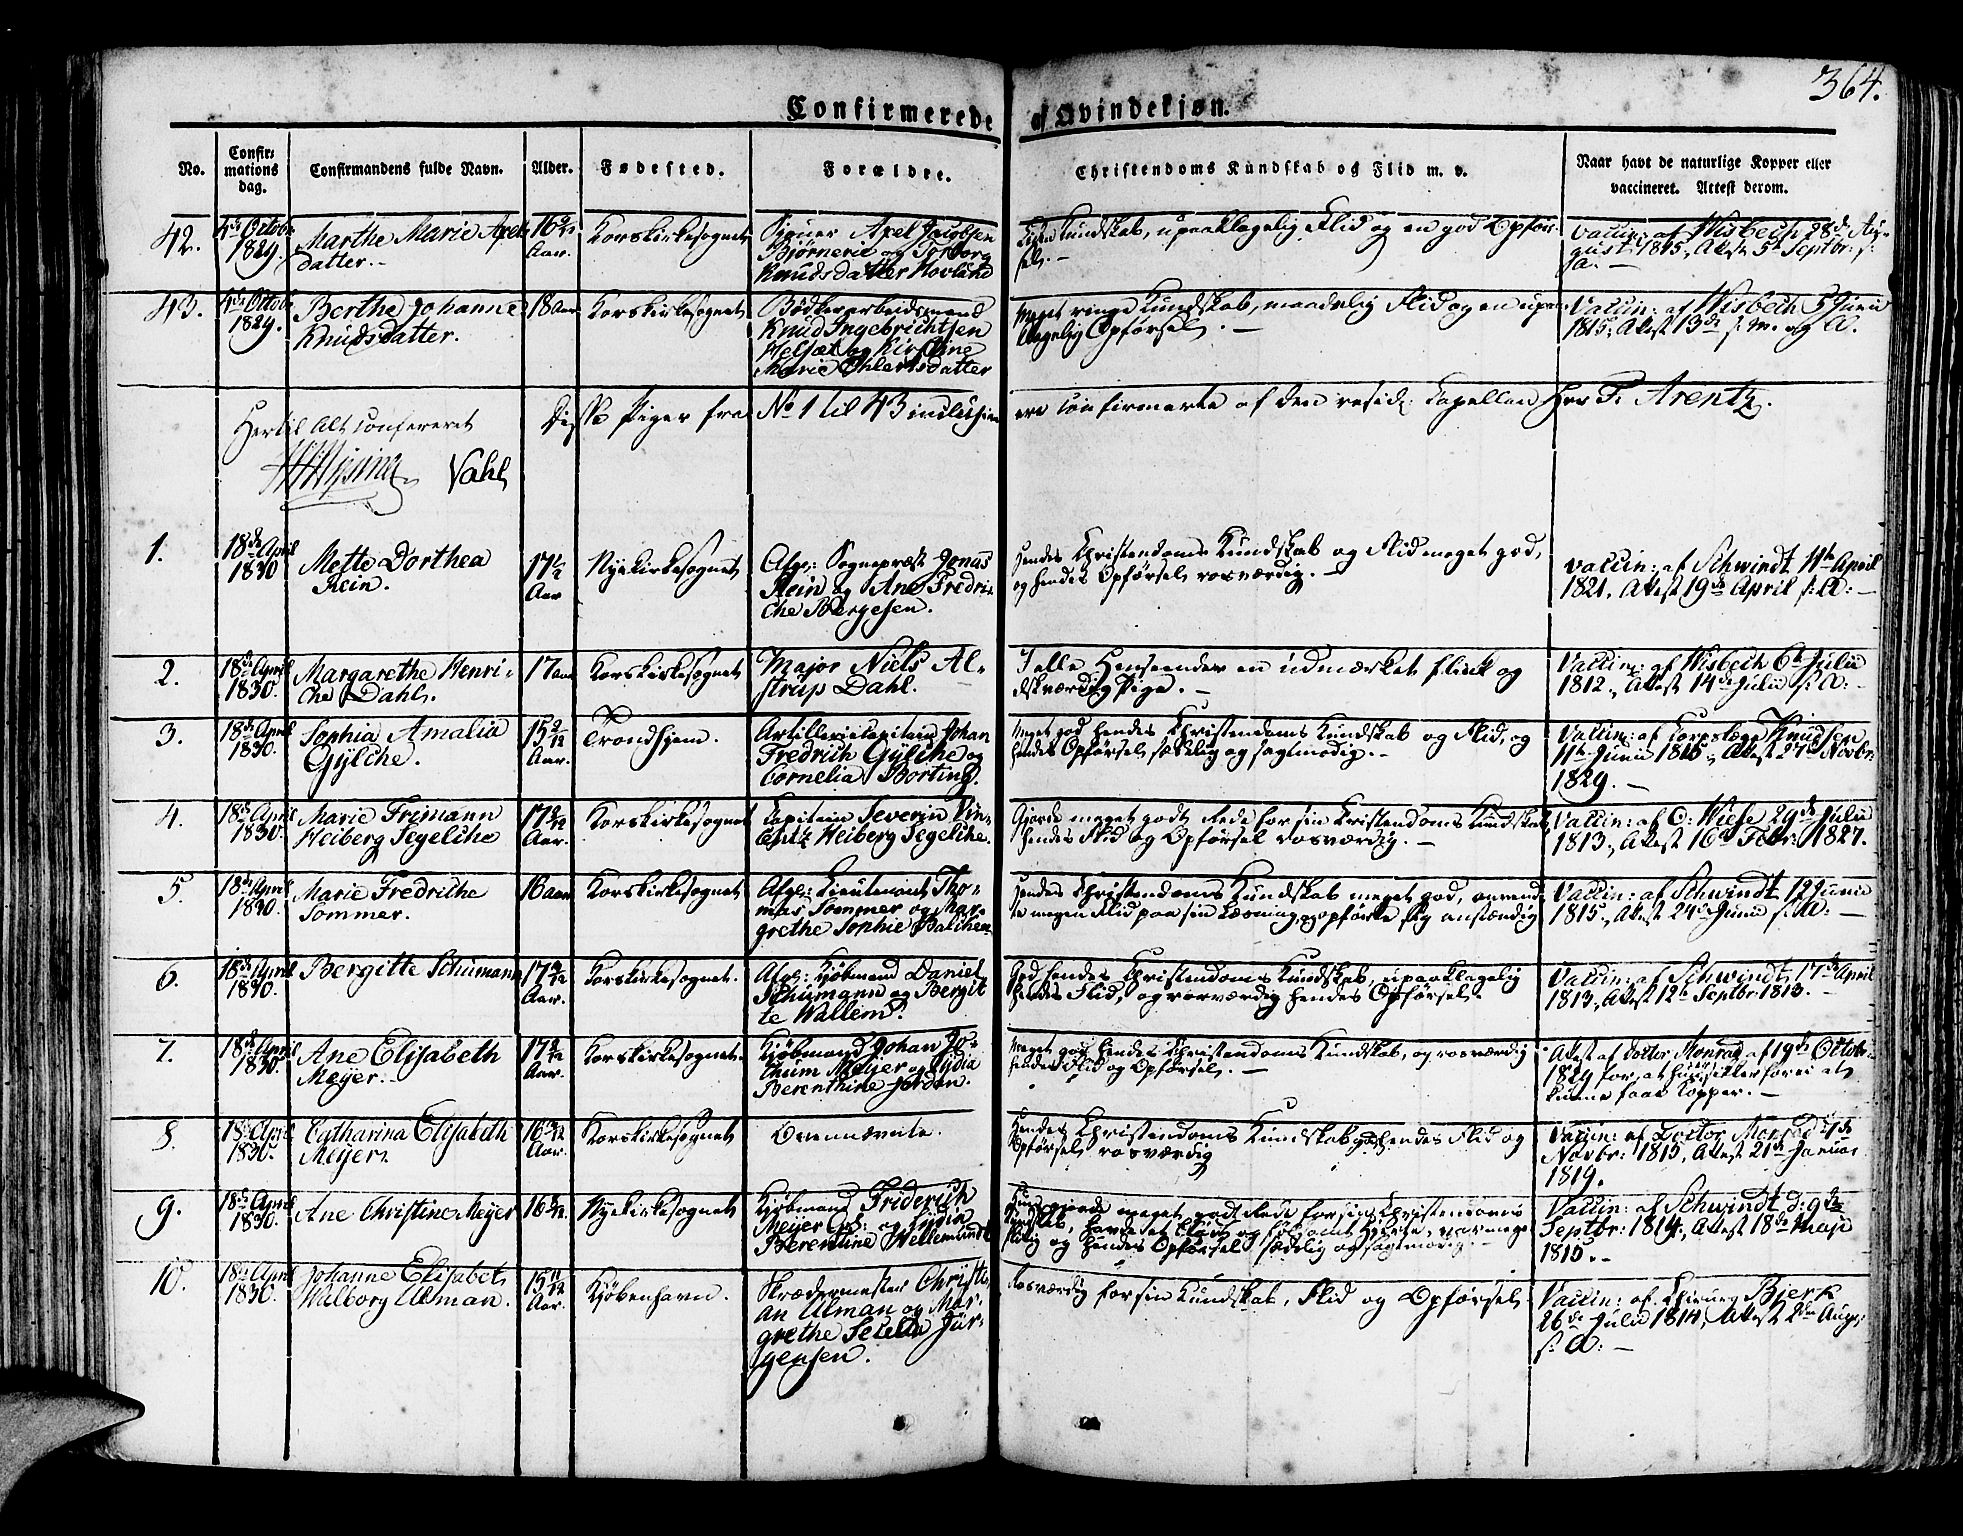 364.
Confirmerede af Qvindekjøn.
No.
Confir-
mations
dag.
Confirmandens fulde Navn.
Alder.
Fødested.
Forældre.
Christendoms Kundskab og Flid m. v.
Naar havt de naturlige Kopper eller
vaccineret. Attest derom.
42.
4de Octobr
1829.
Marthe Marie Axels
datter.
16
Aar.
Korskirkesognet
Axel Jacobsen
Bjørnerie og Torborg
Knudsdatter Hovland
Kundskab, upaaklagelig Flid og en god Opfør-
sel. -
Vaccin: af Wisbech 28de Au-
gust 1815, Attest 5te Septbr: s:
A. -
43.
4de Octobr
1829.
Berthe Johanne
Knudsdatter.
18 Aar
Korskirkesognet
Bødkerarbeidsmand
Knud Ingebrichtsen
og Kirstine
Marie Ehlertsdatter
Meget ringe Kundskab, maadelig Flid og en upaa-
klagelig Opførsel. -
Vaccin: af Wisbech 5 Junii
1815, Attest 13de s: M. og A.
Hertil Alt confereret
Vahl
Disse Piger fra No 1 til 43 inclusive
ere confirmerte af den resid: Capellan Hr: F. Arentz.
1.
18de April
1830
Mette Dorthea
Rein.
17½
Aar
Nyekirkesognet
Afg: Sognepræst Jonas
Rein og Ane Fredri-
che Bergesen.
Hendes Christendoms Kundskab og Flid meget god,
og hendes Opførsel rosværdig. -
Vaccin: af Schwindt 11te April
1821, Attest 19de April s: A: -
2.
18de April
1830.
Margarethe Henri-
che Dahl.
17 Aar
Korskirkesognet
Major Niels Al-
strup Dahl.
I alle Henseender en udmærket flink og
elskværdig Pige. -
Vaccin: af Wisbech 6te Julii
1812, Attest 14de Julii s: A: -
3.
18de April
1830.
Sophia Amalia
Gÿlche.
15 2/12
Aar.
Trondhjem.
Artilleriecapitain Johan
Fredrich Gÿlche og
Cornelia Borting.
Meget god hendes Christendoms Kundskab og Flid, og
hendes Opførsel sædelig og sagtmodig. -
Vaccin: af Corpslæge Knudsen
11te Junii 1815, Attest 27de Novbr:
1829. -
4.
18de April
1830.
Marie Frimann
Heiberg Segelche
17
Aar.
Korskirkesognet
Capitain Severin Vin-
centz Heiberg Segelche.
Gjorde meget godt Rede for sin Kristendoms Kundskab,
hendes Flid og Opførsel rosværdig. -
Vaccin: af O: Wiese 29de Julii
1813, Attest 16de Febr: 1827.
5.
18de April
1830.
Marie Fredriche
Sommer.
16 Aar
Korskirkesognet
Afg: Lieutenant Tho-
mas Sommer og Mar-
grethe Sophie Balchen
Hendes Christendoms Kundskab meget god, anvend
te megen Flid paa sin Lærdom og opførte sig anstændig
Vaccin: af Schwindt 12 Junii
1815, Attest 24de Junii s: A: -
6.
18de April
1830.
Bergitte Schumann
17
Aar.
Korskirkesognet.
Afg: Kjøbmand Daniel
Schumann og Bergit-
te Wallem.
God hendes Christendoms Kundskab, upaaklagelig
hendes Flid, og rosværdig hendes Opførsel. -
Vaccin: af Schwindt 17de April
1813, Attest 12te Septbr: 1813. -
7.
18de April
1830.
Ane Elisabeth
Meÿer.
17
Aar.
Korskirkesognet.
Kjøbmand Johan Jo-
chim Meÿer og Lydia
Berenthine Jordan.
Meget god hendes Christendoms Kundskab, og rosværdig
hendes Flid og Opførsel. -
Attest af Doctor Monrad af 19de Octobr:
1829 for, at hun er sikker for ei at
kunne faae Kopper. -
8.
18de April
1830.
Catharina Elisabeth
Meÿer.
16
Aar.
Korskirkesognet
Ovennævnte.
Hendes Christendoms Kundskab god, hendes Flid og
Opførsel rosværdig
Vaccin: af Doctor Monrad 4de
Novbr: 1815, Attest 21de Januar
1819.
9.
18de April
1830.
Ane Christine Meÿer
16
Nyekirkesognet
Kjøbmand Friderich
Meÿer og Lydia
Berentine Wellemundt
Hun gjorde meget godt Rede for sin Christendoms
Kundskab,
flittig og hendes Opførsel sædelig og sagtmodig. -
Vaccin: af Schwindt d: 9de
Septbr: 1814, Attest 18de Maji
1815. -
10.
18de April
1830.
Johanne Elisabet
Walborg Ulman.
15 11/12
Aar.
Kjøbenhavn.
Skrædermester Christi-
an Ulman og Mar-
grethe Jür-
gensen.
Rosværdig for sin Kundskab, Flid og Opførsel
Vaccin: af Chirurg Bjerk
26de Julii 1814, Attest 2den Aug:
s: A: -